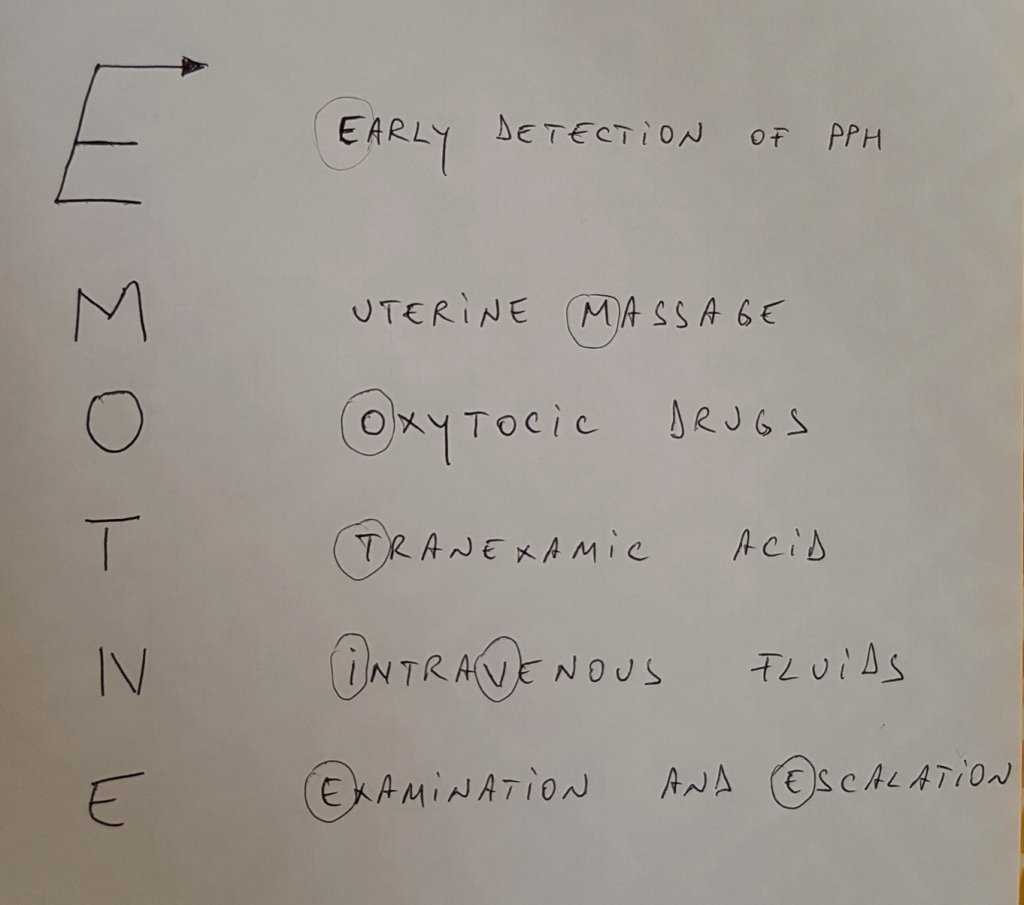 E EARLY DETECTiON OF PPH
M UTERiNE MASSAGE
O OXYTOCiC DRUGS
T TRANEXAMiC ACiD
IV iNTRAVENOUS FLUiDS
E EXAMiNATiON AND ESCALATiON